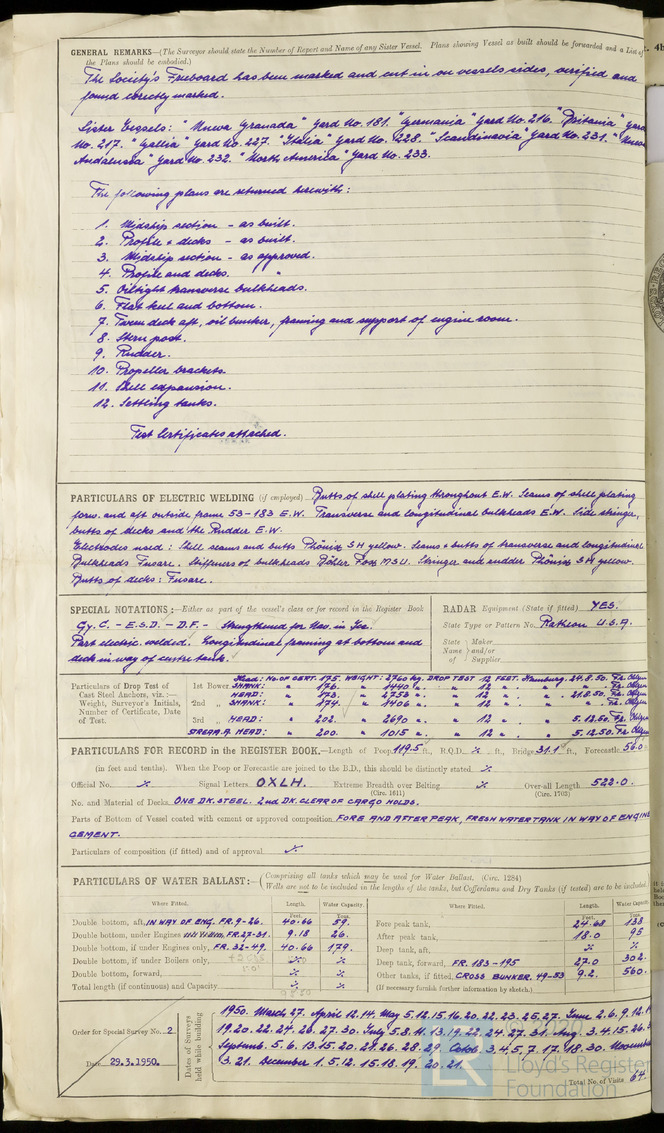 GENERAL REMARKS—(The Surveyor should state the Number of Report and Name of any Sister Vessel. Plans showing Vessel as built should be forwarded and a List of
the Plans should be embodied.)
The Society's Freeboard has been marked and cut in on vessels sides, verified and
found correctly marked.
Sister Vessels: "Nueva Granada" Yard No. 181. "Germania" Yard No. 216. "Britania" Yard
No. 217. "Gallia" Yard No. 227. "Italia" Yard No. 228. "Scandinavia" Yard No. 231. "Nueva
Andalucia" Yard No. 232. "North America" Yard No. 233.
The following plans are returned herewith:
1. Midship section - as built.
2. Profile & decks - as built.
3. Midship section - as approved.
4. Profile and decks. "
5. Oiltight transverse bulkheads.
6. Flat keel and bottom.
7. Tween deck aft, oil bunker, framing and support of engine room.
8. Stern post.
9. Rudder.
10. Propeller brackets.
11. Shell expansion.
12. Settling tanks.
Test Certificates attached.
PARTICULARS OF ELECTRIC WELDING (if employed) Butts of shell plating throughout E.W. Seams of shell plating
forw. and aft outside frame 53-183 E.W. Transverse and longitudinal bulkheads E.W. Side stringer,
butts of decks and the Rudder E.W.
Electrodes used: Shell seams and butts Phönix SH yellow. Seams & butts of transverse and longitudinal
Bulkheads Fusarc. Stiffeners of bulkheads Böhler Fox MSU. Stringer and rudder Phönix SH yellow.
Butts of decks: Fusarc.
SPECIAL NOTATIONS:—Either as part of the vessel's class or for record in the Register Book
Gy.C. - E.S.D. - D.F. - Strengthened for Nav. in Ice.
Part electric welded. Longitudinal framing at bottom and
deck in way of centre tank.
RADAR Equipment (State if fitted) YES.
State Type or Pattern No. Ratheon U.S.A.
State Name of Maker and/or Supplier
Particulars of Drop Test of
Cast Steel Anchors, viz.:—
Weight, Surveyor's Initials,
Number of Certificate, Date
of Test.
Head: No OF CERT. 175. WEIGHT: 2760 kg. DROP TEST 12 FEET. Hamburg. 24.8.50.
1st Bower SHANK: " 176. " 1440 " " 12 "
HEAD: " 173. " 2752 " " 12 " 21.8.50.
2nd " SHANK: " 174. " 1406 " " 12 "
3rd " HEAD: " 202. " 2690 " " 12 " 5.12.50.
HEAD: " 200. " 1015 " " 12 " 5.12.50.
PARTICULARS FOR RECORD in the REGISTER BOOK.—Length of Poop 119.5 ft., R.Q.D. ft., Bridge 31.1 ft., Forecastle 56.0
(in feet and tenths). When the Poop or Forecastle are joined to the B.D., this should be distinctly stated
Official No. Signal Letters OXLH. Extreme Breadth over Belting (Circ. 1611) Over-all Length (Circ. 1703) 522.0.
No. and Material of Decks ONE DK. STEEL. 2nd DK. CLEAR OF CARGO HOLDS.
Parts of Bottom of Vessel coated with cement or approved composition FORE AND AFTER PEAK, FRESH WATER TANK IN WAY OF ENGINE
CEMENT.
Particulars of composition (if fitted) and of approval
PARTICULARS OF WATER BALLAST:—(Comprising all tanks which may be used for Water Ballast. (Circ. 1284)
Wells are not to be included in the lengths of the tanks, but Cofferdams and Dry Tanks (if tested) are to be included
Where Fitted. Length. Water Capacity. Where Fitted. Length. Water Capacity.
Feet. Tons. Feet. Tons.
Double bottom, aft, IN WAY OF ENG. FR. 9-26. 40.66 59. Fore peak tank, 24.68 138
Double bottom, under Engines FR. 27-31. 9.18 26. After peak tank, 18.0 95
Double bottom, if under Engines only, FR. 32-49. 40.66 179. Deep tank, aft,
Double bottom, if under Boilers only, Deep tank, forward, FR. 183-195 27.0 302.
Double bottom, forward, Other tanks, if fitted, CROSS BUNKER. 49-53 9.2. 560.
Total length (if continuous) and Capacity (If necessary furnish further information by sketch.)
Order for Special Survey No. 2
Date 29.3.1950.
Dates of Surveys held while building
1950. March 27. April 12.14. May 5.12.15.16.20.22.23.25.27. June 2.6.9.12.
19.20.22.24.26.27.30. July 5.8.11.13.19.22.24.27.31. Aug. 3.4.15.26.
Septemb. 5.6.13.15.20.21.26.28.29. Octob. 3.4.5.7.17.18.30. Novemb
3.21. December 1.5.12.15.18.19.20.21.
Total No. of Visits 64.
Lloyd's Register
Foundation